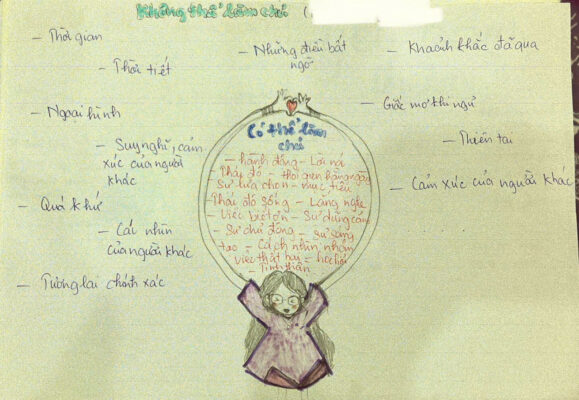 Không thể làm chủ (
- Thời gian
- Thời tiết
- Những điều bất
ngờ
- Khoảnh khắc đã qua
- Ngoại hình
- Giấc mơ khi ngủ
- Suy nghĩ, cảm
xúc của người
khác
- Thiên tai
- Cảm xúc của người khác
- Quá khứ
- Cái nhìn
của người khác
- Tương lai chính xác
Có thể làm
chủ
- hành động - Lời nói
Thái độ - thời gian hằng ngày
Sự lựa chọn - mục tiêu
- Thái độ sống - Lắng nghe
- Việc biết ơn - Sự dũng cảm
- Sự chủ động - sự sáng
tạo - Cách nhìn nhận
việc thất bại - học hỏi
- Tinh thần